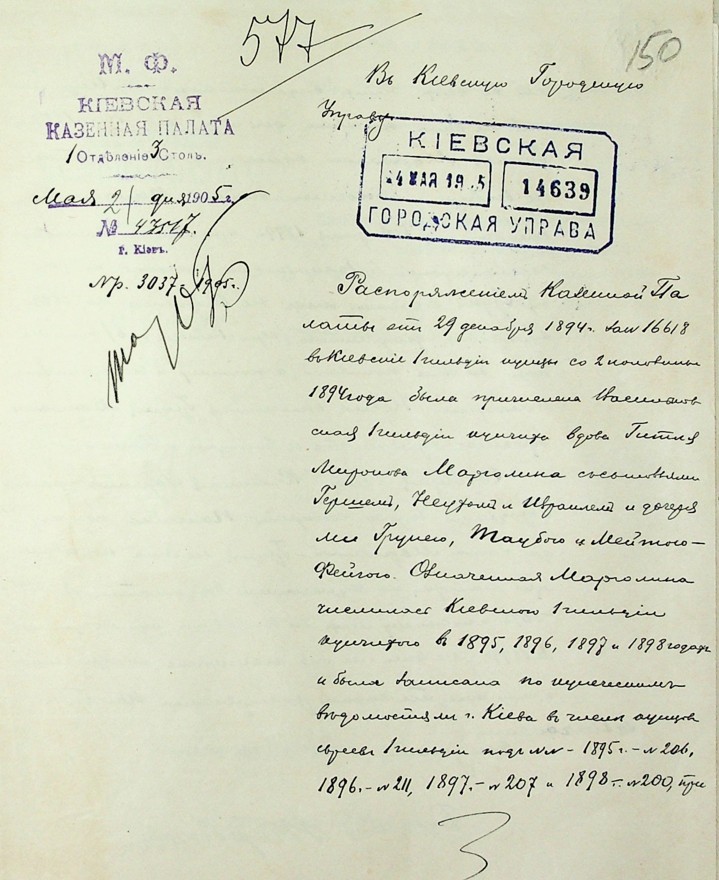 577
150
М. Ф.
КІЕВСКАЯ
КАЗЕННАЯ ПАЛАТА
1 Отдѣленіе 3 Столъ.
Мая 21 дня 1905 г.
№ 47517.
г. Кіевъ.
Въ Кіевскую Городскую
Управу
КІЕВСКАЯ
24 МАЯ 19 5
14639
ГОРОДСКАЯ УПРАВА
Нр. 3037 1905 г.
Распоряженіемъ Казенной Па
латы отъ 29 декабря 1894 г. за № 16618
въ Кіевскіе 1 гильдіи купцы со 2 половины
1894 года была причислена Васильков
ская 1 гильдіи купчиха вдова Гитля
Миронова Марголина съ сыновьями
Гершемъ, Нехумъ и Израилемъ и дочеря
ми Грунею, Таубою и Мейтою-
Фейгою. Означенная Марголина
числилась Кіевскою 1 гильдіи
купчихою въ 1895, 1896, 1897 и 1898 годахъ
и была записана по купеческимъ
вѣдомостямъ г. Кіева въ числѣ купцовъ
евреевъ 1 гильдіи подъ №№ - 1895 г. - № 206,
1896. - № 211, 1897. - № 207 и 1898 г. № 200, при